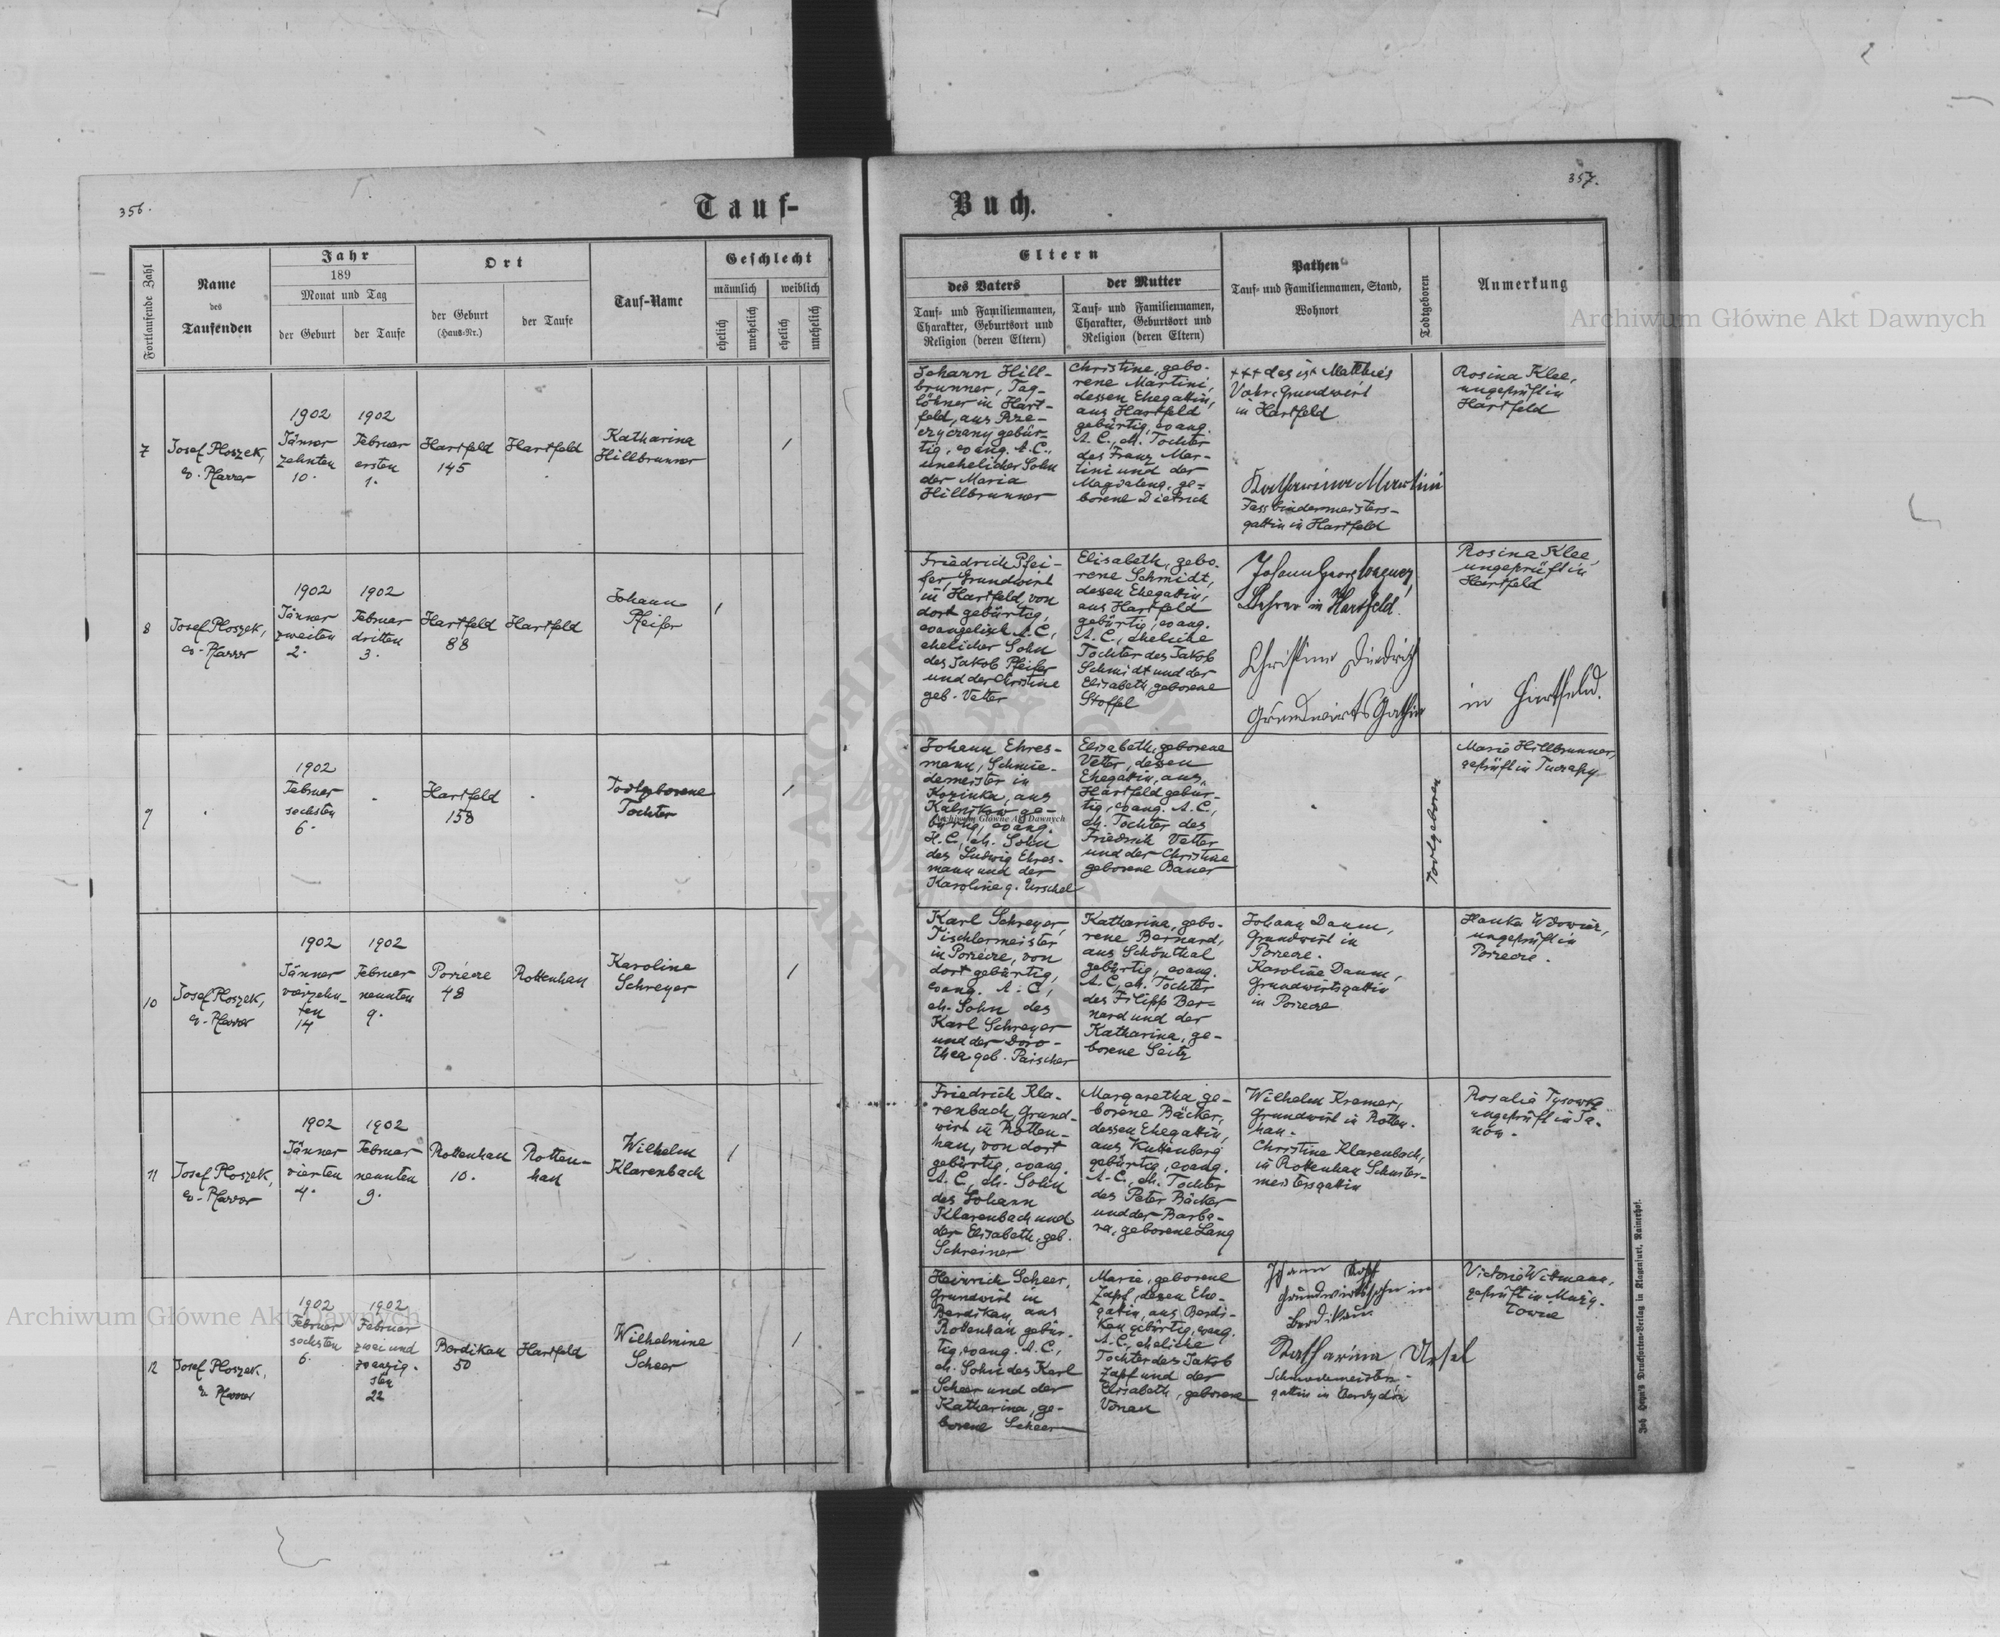 356.
Tauf-
Fortlaufende Zahl
Name
des
Taufenden
Jahr
189
Monat und Tag
der Geburt
der Taufe
Ort
der Geburt
(Haus-Nr.)
der Taufe
Tauf-Name
Geschlecht
männlich
weiblich
ehelich
unehelich
ehelich
unehelich
7
Josef Ploszek,
ev. Pfarrer
1902
Jänner
zehnten
10.
1902
Februar
ersten
1.
Hartfeld
145
Hartfeld
Katharina
Hillbrunner
8
Josef Ploszek,
ev. Pfarrer
1902
Jänner
zweiten
2.
1902
Februar
dritten
3.
Hartfeld
88
Hartfeld
Johann
Pfeifer
9
1902
Februar
sechsten
6.
Hartfeld
158
Todtgeborene
Tochter
10
Josef Ploszek,
ev. Pfarrer
1902
Jänner
vierzehn-
ten
14
1902
Februar
neunten
9.
Porzecze
48
Rottenhan
Karoline
Schreyer
11
Josef Ploszek,
ev. Pfarrer
1902
Jänner
vierten
4.
1902
Februar
neunten
9.
Rottenhan
10.
Rotten-
han
Wilhelm
Klarenbach
12
Josef Ploszek,
ev. Pfarrer
1902
Februar
sechsten
6.
1902
Februar
zwei und
zwanzig-
sten
22
Berdikau
50
Hartfeld
Wilhelmine
Scheer
357.
Buch.
Eltern
des Vaters
Tauf- und Familiennamen,
Charakter, Geburtsort und
Religion (deren Eltern)
der Mutter
Tauf- und Familiennamen,
Charakter, Geburtsort und
Religion (deren Eltern)
Pathen
Tauf- und Familiennamen, Stand,
Wohnort
Todtgeboren
Anmerkung
Johann Hill-
brunner, Tag-
löhner in Hart-
feld, aus Rze-
czyczany gebür-
tig, evang. A.C.,
unehelicher Sohn
der Maria
Hillbrunner
Christine, gebo-
rene Martini,
dessen Ehegattin,
aus Hartfeld
gebürtig, evang.
A.C., eh. Tochter
des Franz Mar-
tini und der
Magdalena, ge-
borene Dietrich
+++ das ist Matthies
Grundwirt
in Hartfeld
Katharina Martini
Fassbindermeisters-
gattin in Hartfeld
Rosina Klee,
ungeprüft in
Hartfeld
Friedrich Pfei-
fer, Grundwirt
in Hartfeld, von
dort gebürtig,
evangelisch A.C.,
ehelicher Sohn
des Jakob Pfeifer
und der Christine
geb. Vetter
Elisabeth, gebo-
rene Schmidt,
dessen Ehegattin,
aus Hartfeld
gebürtig, evang.
A.C., eheliche
Tochter des Jakob
Schmidt und der
Elisabeth, geborene
Stoffel
Johann Georg
Lehrer in Hartfeld.
Christine Diedrich
Grundwirts Gattin
in Hartfeld.
Rosina Klee,
ungeprüft in
Hartfeld
Johann Ehres-
mann, Schmie-
demeister in
Kozinka, aus
Kalnikow ge-
bürtig, evang.
H.C., eh. Sohn
des Ludwig Ehres-
mann und der
Karoline g. Urschel
Elisabeth, geborene
Vetter, dessen
Ehegattin, aus
Hartfeld gebür-
tig, evang. A.C.,
eh. Tochter des
Friedrich Vetter
und der Christine
geborene Bauer
Todtgeboren
Marie Hillbrunner,
geprüft in Tuczapy
Karl Schreyer,
Tischlermeister
in Porzecze, von
dort gebürtig,
evang. A.C.,
eh. Sohn des
Karl Schreyer
und der Doro-
thea geb. Paischer
Katharina, gebo-
rene Bernard,
aus Schönthal
gebürtig, evang.
A.C., eh. Tochter
des Filipp Ber-
nard und der
Katharina, ge-
borene Seitz
Johann Daum,
Grundwirt in
Porzecze.
Karoline Daum,
Grundwirtsgattin
in Porzecze
Hanka Wdowicz,
ungeprüft in
Porzecze.
Friedrich Kla-
renbach, Grund-
wirt in Rotten-
han, von dort
gebürtig, evang.
A.C., eh. Sohn
des Johann
Klarenbach und
der Elisabeth, geb.
Schreiner
Margaretha ge-
borene Bäcker,
dessen Ehegattin,
aus Kuttenberg
gebürtig, evang.
A.C., eh. Tochter
des Peter Bäcker
und der Barba-
ra, geborene Lang
Wilhelm Kramer,
Grundwirt in Rotten-
han.
Christine Klarenbach,
in Rottenhan Schuster-
meistersgattin
Rosalie Tysowka
ungeprüft in Ja-
now.
Heinrich Scheer,
Grundwirt in
Berdikau, aus
Rottenhan gebür-
tig, evang. A.C.,
eh. Sohn des Karl
Scheer und der
Katharina, ge-
borene Scheer
Marie, geborene
Zapf, dessen Ehe-
gattin, aus Berdi-
kau gebürtig, evang.
A.C., eheliche
Tochter des Jakob
Zapf und der
Elisabeth, geborene
Vonau
Johann Zapf
Grundwirtssohn in
Berdikau
Katharina Ursel
Schmiedemeisters-
gattin in Berdydau
Victorie Witmann,
geprüft in Muży-
lowie
Joh. Heyn's Drucksorten-Verlag in Klagenfurt, Rainerhof.
Archiwum Główne Akt Dawnych
Archiwum Główne Akt Dawnych
Archiwum Główne Akt Dawnych